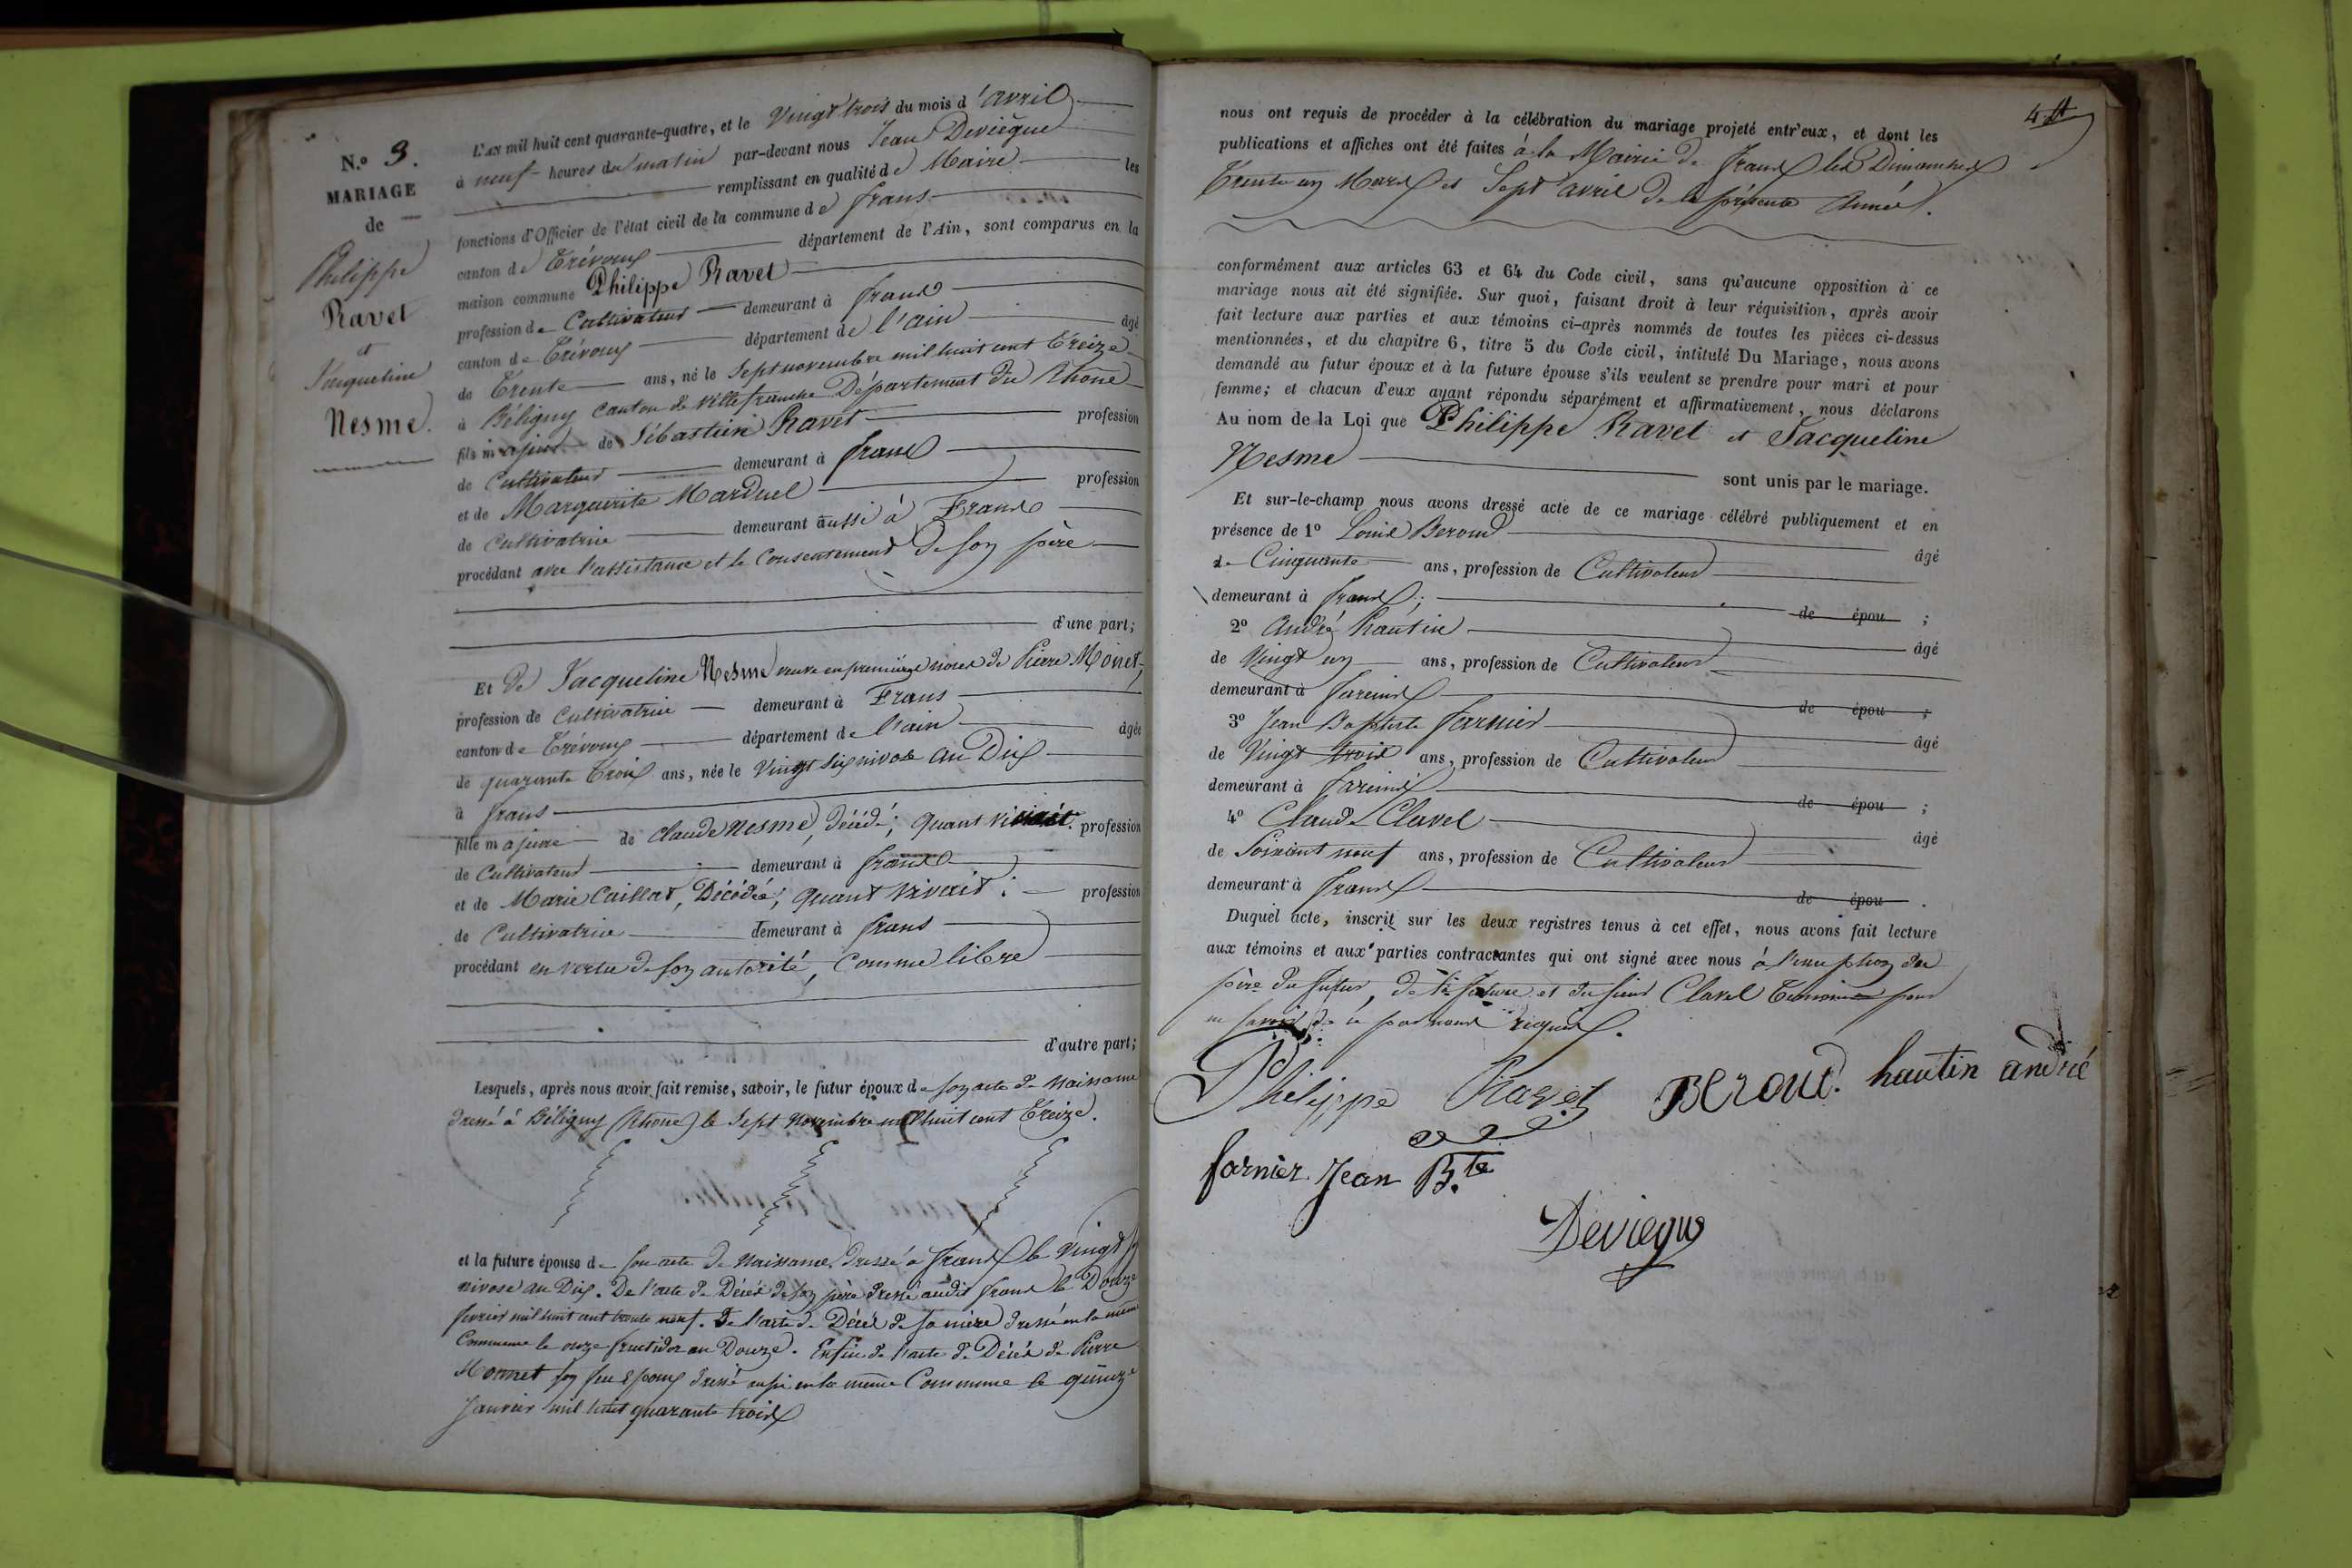 N.º 3.
MARIAGE
de
Philippe
Ravet
et
Jacqueline
Nesme.
L'AN mil huit cent quarante-quatre, et le Vingt trois du mois d'avril
à neuf heures du matin par-devant nous Jean Deviègue
remplissant en qualité de Maire les
fonctions d'Officier de l'état civil de la commune de frans
canton de Trévoux département de l'Ain, sont comparus en la
maison commune Philippe Ravet
profession de Cultivateur demeurant à frans
canton de Trévoux département de l'ain âgé
de Trente ans, né le Sept novembre mil huit cent Treize
à Béligny Canton de Villefranche Département du Rhône
fils majeur de Sébastien Ravet profession
de Cultivateur demeurant à frans
et de Marguerite Marduel profession
de Cultivatrice demeurant aussi à Frans
procédant avec l'assistance et le Consentement de son père
d'une part;
Et de Jacqueline Nesme veuve en premières noces de Pierre Monet,
profession de Cultivatrice demeurant à Frans
canton de Trévoux département de l'ain âgée
de quarante Trois ans, née le Vingt six nivose an Dix
à frans
fille majeure de Claude Nesme, décédé; quant vivait. profession
de Cultivateur demeurant à frans
et de Marie Caillat, Décédée; quant vivait; profession
de Cultivatrice demeurant à frans
procédant en vertu de son autorité, comme libre
d'autre part;
Lesquels, après nous avoir fait remise, savoir, le futur époux de son acte de Naissance
dressé à Béligny (Rhône) le Sept Novembre mil huit cent Treize.
et la future épouse de son acte de Naissance dressé à frans le Vingt six
nivose an Dix. De l'acte de Décès de son père dressé audit frans le Douze
fevrier mil huit cent trente neuf. De l'acte de Décès de sa mère dressé en la même
Commune le onze fructidor an Douze. Enfin de l'acte de Décès de Pierre
Monnet son feu Epoux dressé aussi en la même Commune le quinze
Janvier mil huit quarante trois
4
nous ont requis de procéder à la célébration du mariage projeté entr'eux, et dont les
publications et affiches ont été faites à la Mairie de frans les Dimanches
Trente un Mars et Sept avril de la présente Année.
conformément aux articles 63 et 64 du Code civil, sans qu'aucune opposition à ce
mariage nous ait été signifiée. Sur quoi, faisant droit à leur réquisition, après avoir
fait lecture aux parties et aux témoins ci-après nommés de toutes les pièces ci-dessus
mentionnées, et du chapitre 6, titre 5 du Code civil, intitulé Du Mariage, nous avons
demandé au futur époux et à la future épouse s'ils veulent se prendre pour mari et pour
femme; et chacun d'eux ayant répondu séparément et affirmativement, nous déclarons
Au nom de la Loi que Philippe Ravet et Jacqueline
Nesme sont unis par le mariage.
Et sur-le-champ nous avons dressé acte de ce mariage célébré publiquement et en
présence de 1º Louis Beroud âgé
de Cinquante ans, profession de Cultivateur
demeurant à frans; de épou ;
2º André hautin âgé
de Vingt un ans, profession de Cultivateur
demeurant à fareins de épou ;
3º Jean Baptiste farnier âgé
de Vingt trois ans, profession de Cultivateur
demeurant à fareins de épou ;
4º Claude Clavel âgé
de Soixante neuf ans, profession de Cultivateur
demeurant à frans de épou .
Duquel acte, inscrit sur les deux registres tenus à cet effet, nous avons fait lecture
aux témoins et aux parties contractantes qui ont signé avec nous à l'exception du
père du futur, de la future et du sieur Clavel Temoins pour
ne savoir de ce par nous requis.
Philippe Ravet Beroud. hautin andré
farnier Jean B.te
Deviegue